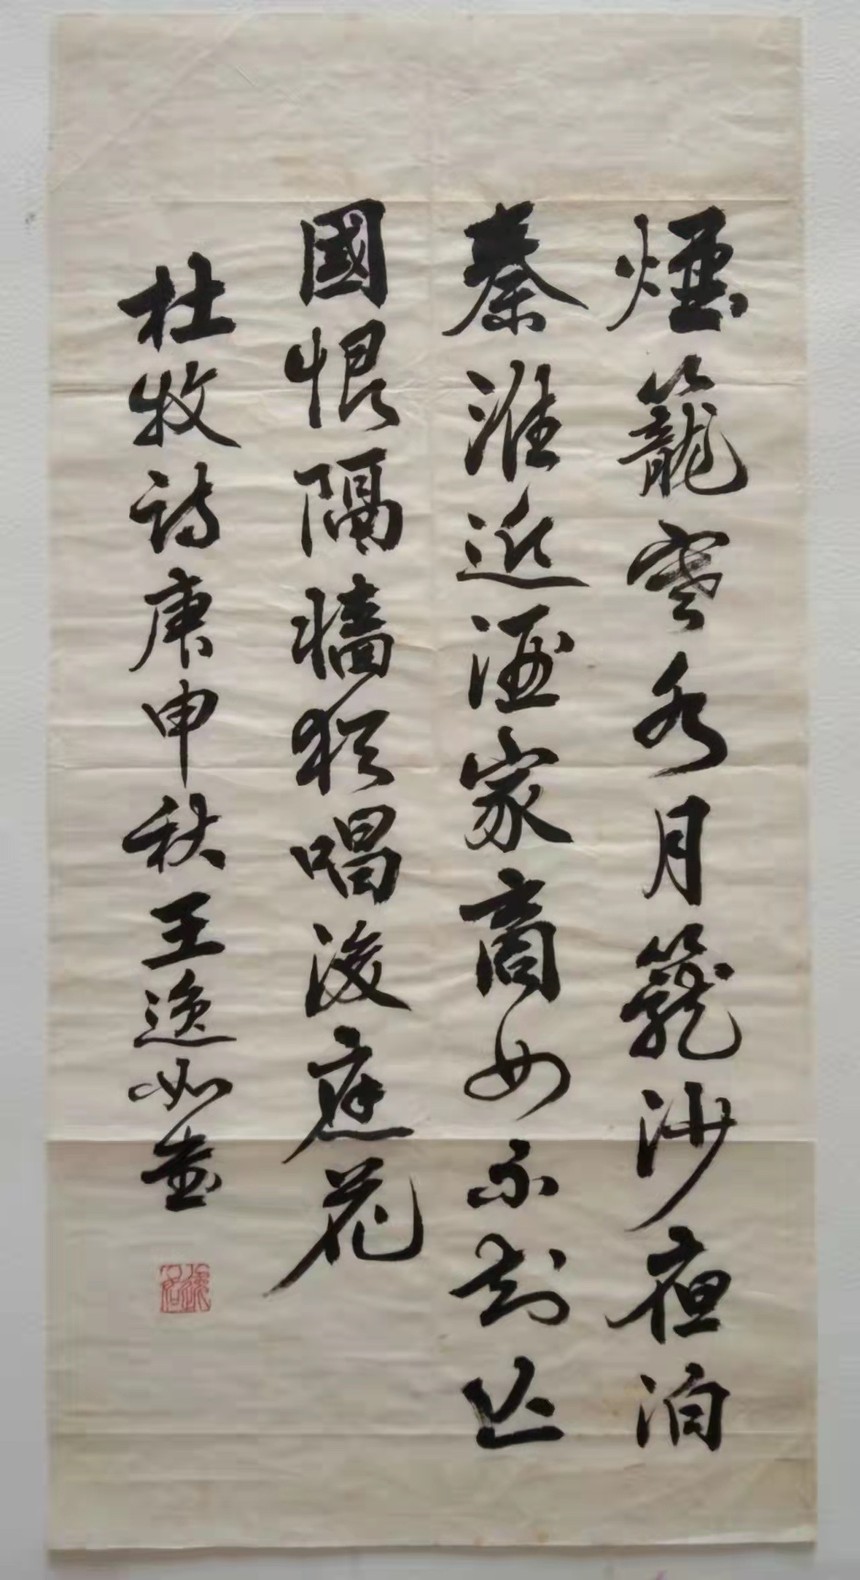 煙籠寒水月籠沙夜泊
秦淮近酒家商女不知亡
國恨隔牆猶唱後庭花
杜牧詩庚申秋王逸如書